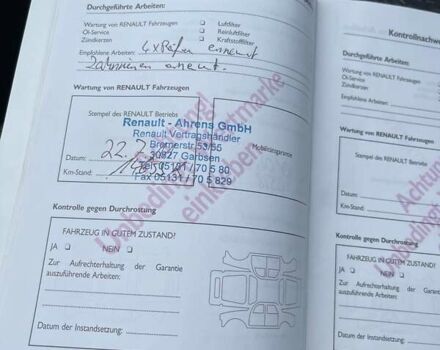 Durchgeführte Arbeiten:
Wartung von RENAULT Fahrzeugen ▢ Luftfilter
Öl-Service ▢ Reinluftfilter
Zündkerzen ▢ Kraftstofffilter
Empfohlene Arbeiten: 4x Reifen erneuert
Zahnriemen erneut.
Wartung von RENAULT Fahrzeugen
Stempel des RENAULT Betriebs
Renault - Ahrens GmbH
Renault Vertragshändler
Bremerstr 53/55
30827 Garbsen
Tel 05131 / 70 5 80
Fax 05131 / 70 5 829
Mobilitätsgarantie
Datum: 22.7
Km-Stand:
Unbedingt
einkleben
Kontrolle gegen Durchrostung
FAHRZEUG IN GUTEM ZUSTAND?
JA ▢ NEIN ▢
Zur Aufrechterhaltung der Garantie
auszuführende Arbeiten:
Datum der Instandsetzung:
Kontrollnachw
Durchgeführte Arbeiten:
Wartung von RENAULT Fahrzeugen
Öl-Service
Zündkerzen
Empfohlene Arbeiten:
Wartung von RENAULT Fahrzeugen
Stempel des RENAULT Betrieb
Datum:
Km-Stand:
Achtung
Unbeding
Kontrolle gegen Durchrostung
FAHRZEUG IN GUTEM ZUSTAN
JA ▢ NEIN ▢
Zur Aufrechterhaltung der
auszuführende Arbeiten:
Datum der Instandset